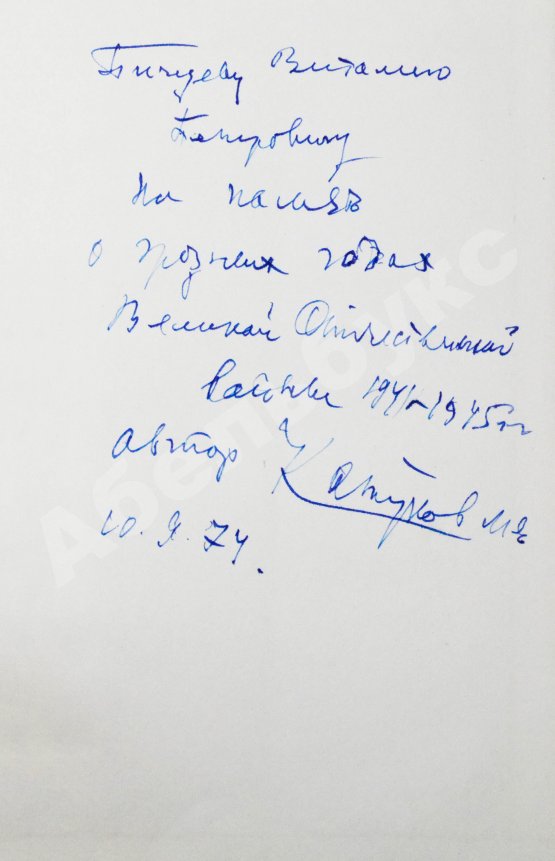 Виталию
Петровичу
На память
о грозных годах
Великой Отечественной
войны 1941-1945 гг
автор Катуков МЕ
10.9.74.
Абельбукс